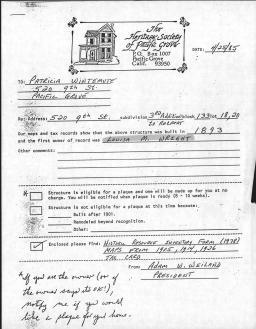 The
Heritage Society
of Pacific Grove
P.O. Box 1007
Pacific Grove
Calif. 93950
DATE: 4/25/85
TO: PATRICIA
520 9th St.
PACIFIC GROVE
Re: Address: 520 9th St. subdivision 3rd Add. block 133 lot 18, 20
Our maps and tax records show that the above structure was built in 1893
and the first owner of record was LOUISA M. WRIGHT
Other comments:
Structure is eligible for a plaque and one will be made for you at no
charge. You will be notified when plaque is ready (8 - 10 weeks).
Structure is not eligible for a plaque at this time because:
Built after 1901.
Remodeled beyond recognition.
Other:
Enclosed please find: HISTORIC RESOURCES INVENTORY FORM (1978)
MAPS FROM 1905, 1914, 1926
TAX CARD
From ADAM W. WEILAND
PRESIDENT
*If you are the owner (or if
the owner says it's OK!),
notify me if you would
like a plaque for your home.